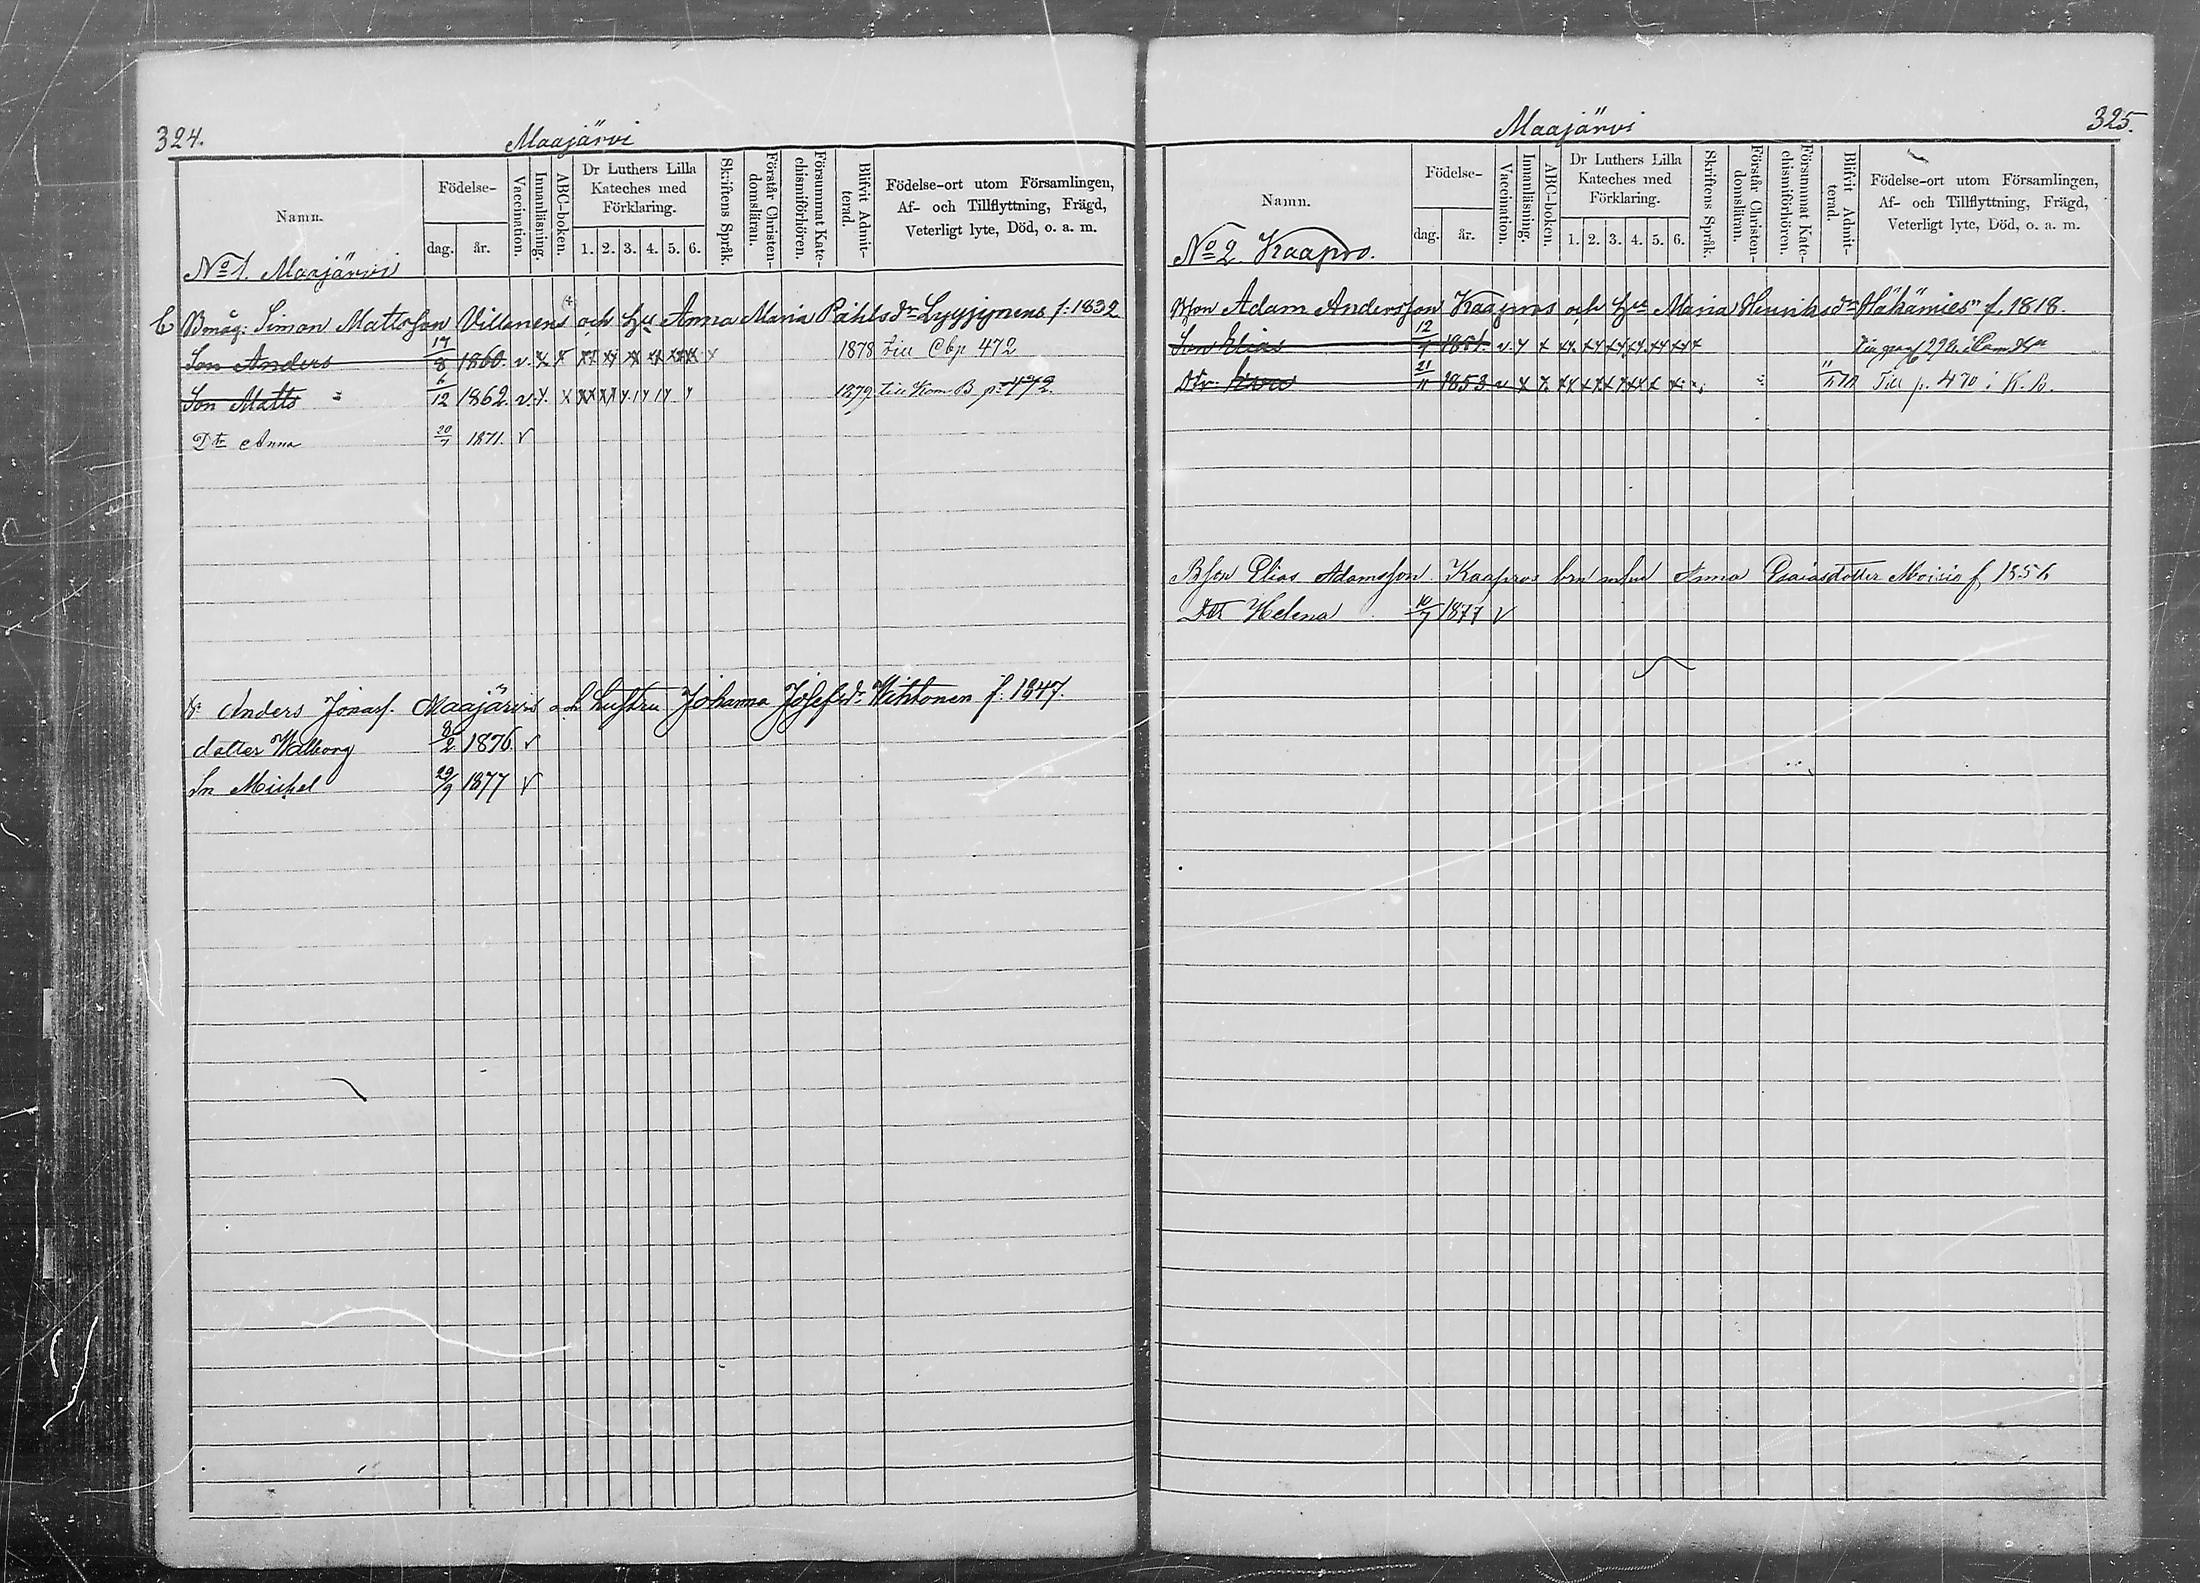 324.
Maajärvi
Namn.
Födelse-
dag.
år.
Vaccination.
Innanläsning.
ABC-boken.
Dr Luthers Lilla
Kateches med
Förklaring.
1. 2. 3. 4. 5. 6.
Skriftens Språk.
Förstår Christen-
domsläran.
Försummat Kate-
chismiförhören.
Blifvit Admit-
terad.
Födelse-ort utom Församlingen,
Af- och Tillflyttning, Frägd,
Veterligt lyte, Död, o. a. m.
No 1. Maajärvi
Bmåg: Simon Mattsson Villanens och Hu Anna Maria Påhlsdr Lyyjynens f. 1832
Son Anders 17/8 1860. v. x x xx xx xx xx xx x 1878 till Cbp 472
Son Matts 6/12 1862. v. x. x xx xx 1879 till Kom B p. 472
Dtr Anna 20/7 1871. v
Anders Jonass. Maajärvi och hustru Johanna Josefsdr Wihtonen f. 1847.
dotter Walborg 8/2 1876 v
Sn Michel 29/9 1877 v
325.
Maajärvi
Namn.
Födelse-
dag.
år.
Vaccination.
Innanläsning.
ABC-boken.
Dr Luthers Lilla
Kateches med
Förklaring.
1. 2. 3. 4. 5. 6.
Skriftens Språk.
Förstår Christen-
domsläran.
Försummat Kate-
chismiförhören.
Blifvit Admit-
terad.
Födelse-ort utom Församlingen,
Af- och Tillflyttning, Frägd,
Veterligt lyte, Död, o. a. m.
No 2 Kaapro.
Adam Andersson Kaapros och Hu Maria Henriksdr Hähämies f. 1818.
Son Elias 12/9 1851. v. x x
Dtr 21/11 1853 v x x Till p. 470 i K. B.
Bson Elias Adamsson Kaapros Anna Esaiasdotter Moisio f 1856
Dtr Helena 10/7 1877 v